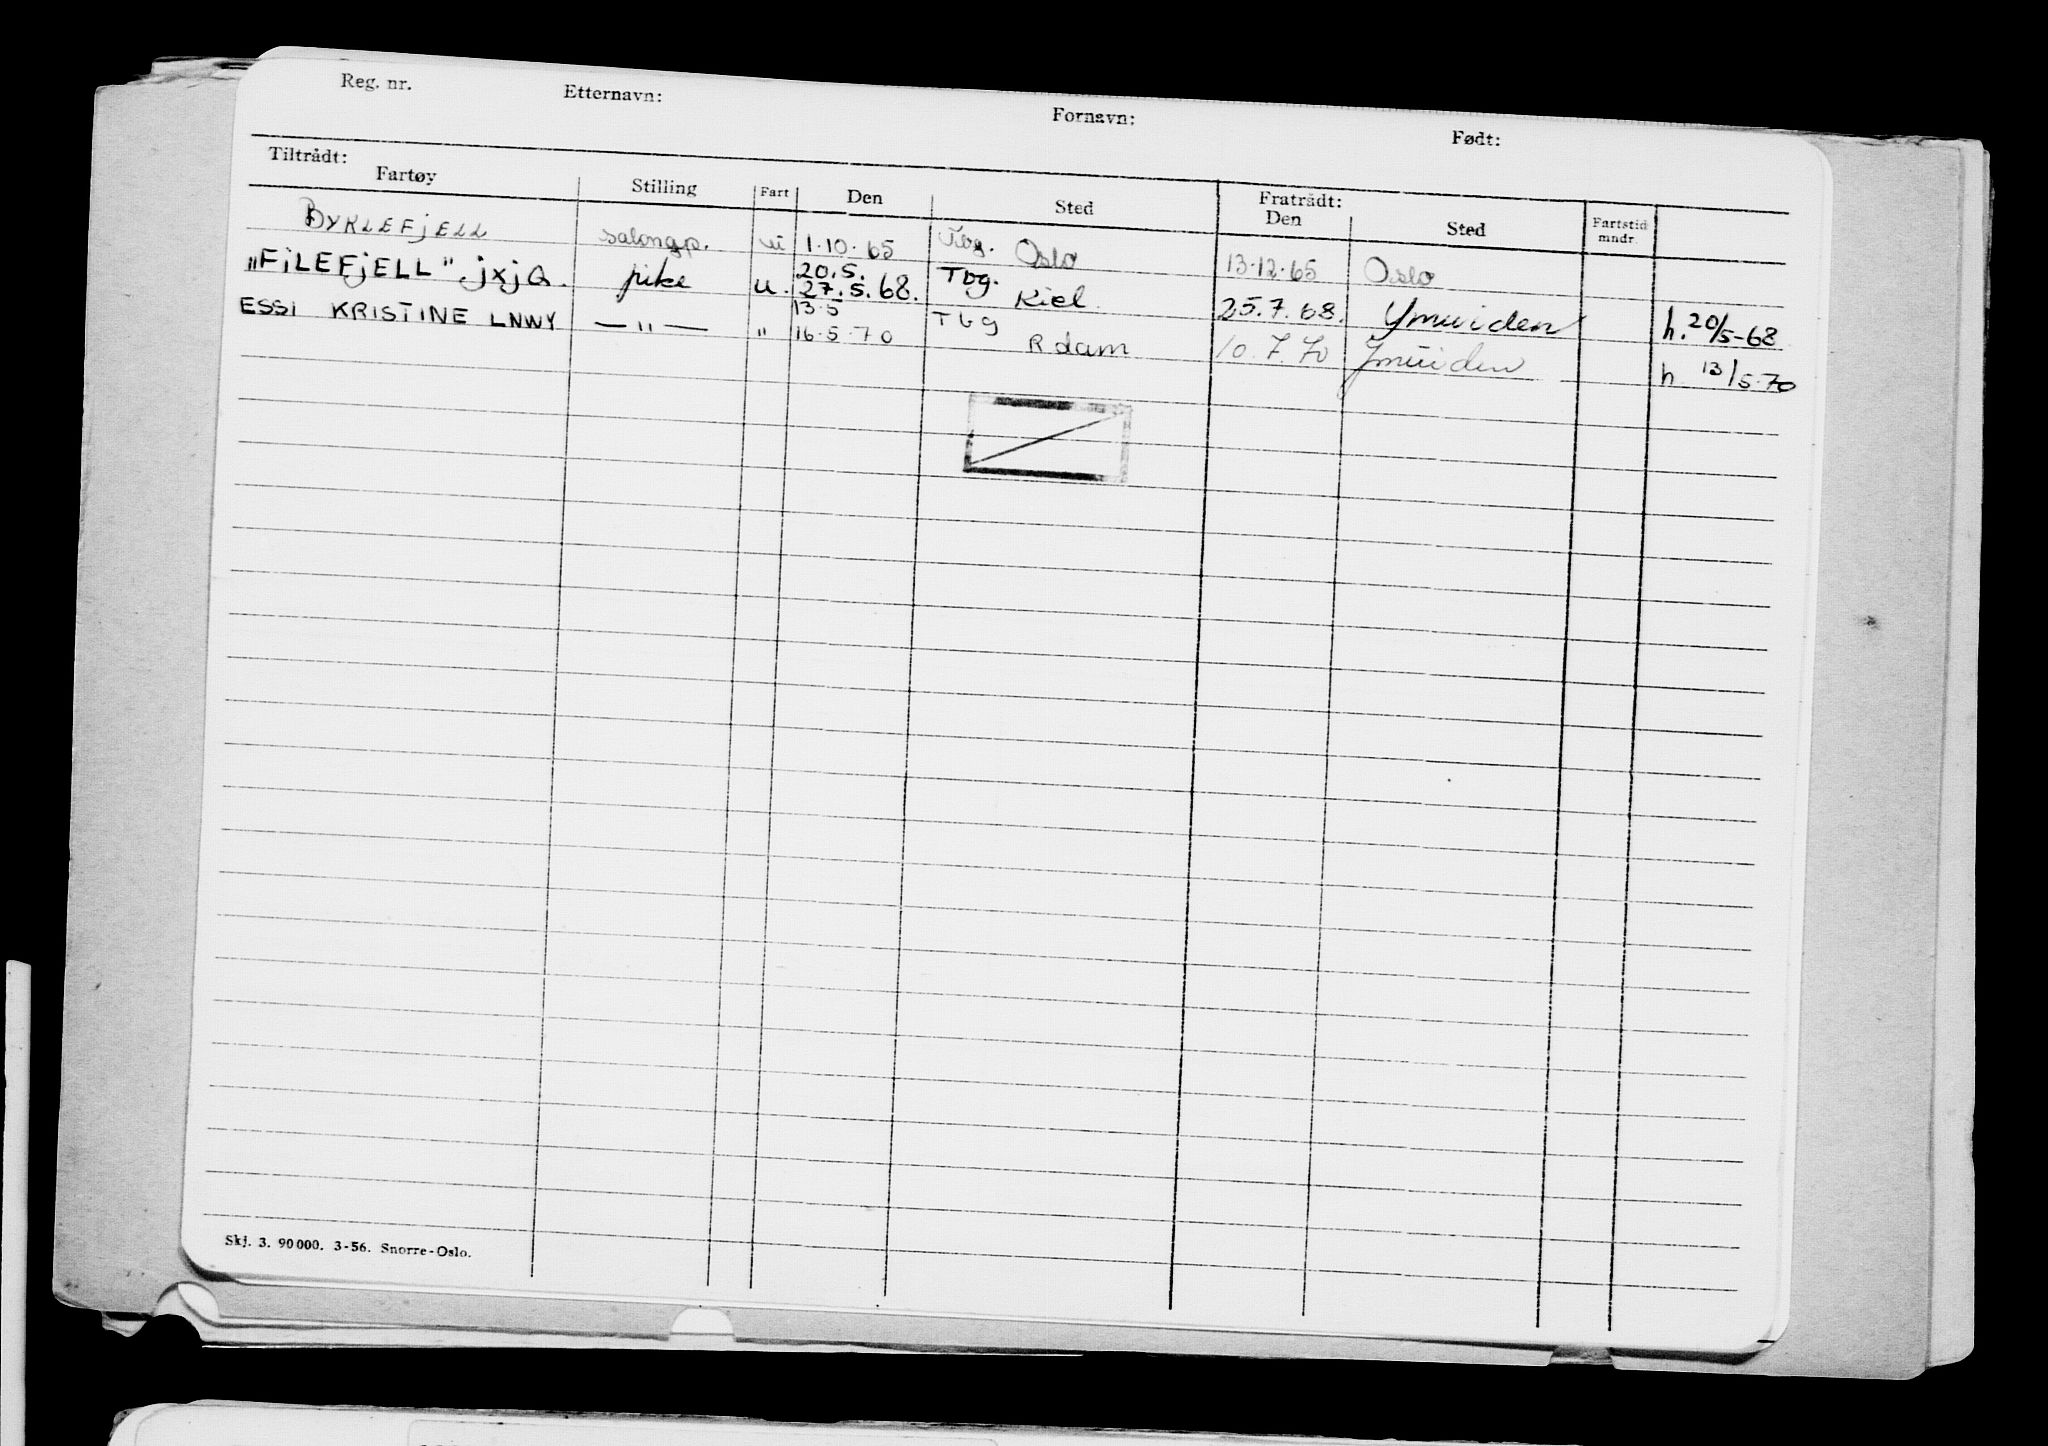 Reg. nr. Etternavn: Fornavn: Født:
Tiltrådt: Fratrådt:
Fartøy Stilling Fart Den Sted Den Sted Fartstid mndr.
BYKLEFjELL salongp. u 1.10.65 Tbg. Oslo 13.12.65 Oslo
20.5.
"FiLEFjELL". jxjQ. pike u. 27.5.68. Tbg. Kiel. 25.7.68. Ymuiden h. 20/5-68
13.5
ESSI KRISTINE LNWY —"— " 16.5.70 Tbg R dam 10.7.70 Jmuiden h 13/5-70
Skj. 3. 90 000. 3-56. Snorre-Oslo.